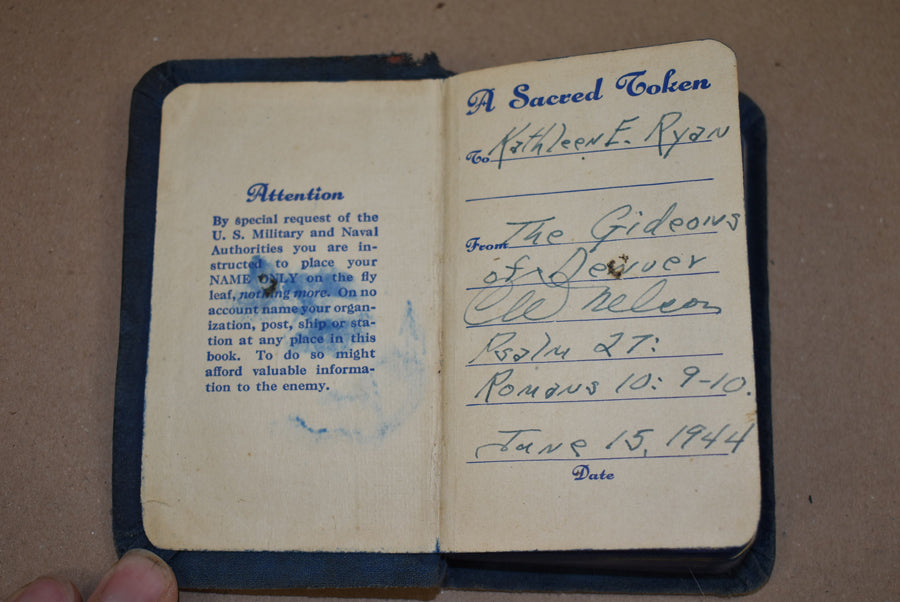 Attention
By special request of the
U. S. Military and Naval
Authorities you are in-
structed to place your
NAME ONLY on the fly
leaf, nothing more. On no
account name your organ-
ization, post, ship or sta-
tion at any place in this
book. To do so might
afford valuable informa-
tion to the enemy.
A Sacred Token
To Kathleen E. Ryan
From The Gideons
of Denver
Nelson
Psalm 27:
Romans 10: 9-10.
June 15, 1944
Date